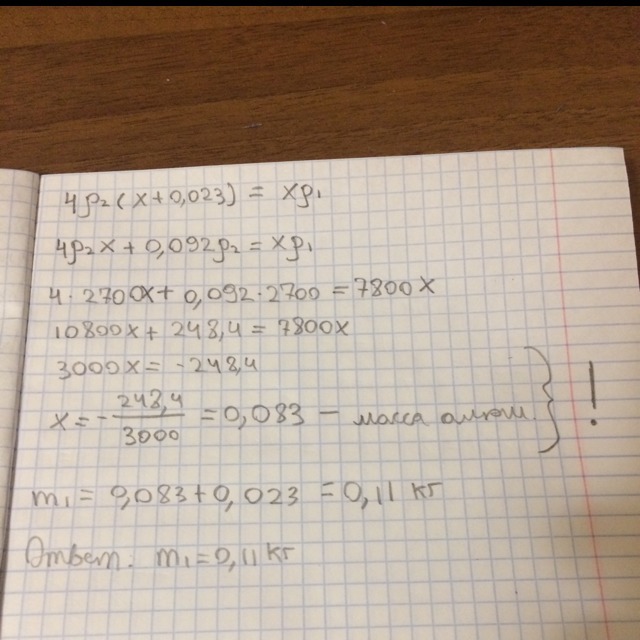 4ρ₂(x+0,023) = xρ₁
4ρ₂x+0,092ρ₂=xρ₁
4·2700x+0,092·2700=7800x
10800x+248,4=7800x
3000x= -248,4
x=-248,4/3000=0,083 - масса алюм }!
m₁ = 0,083+0,023=0,11 кг
Ответ: m₁=0,11кг